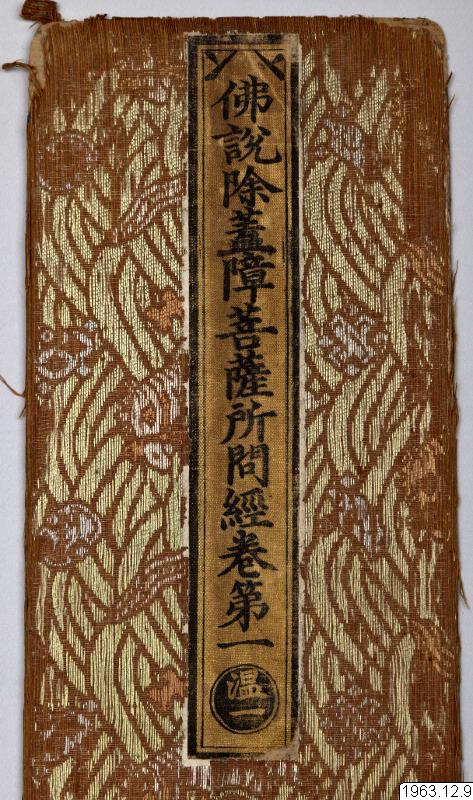 佛說除蓋障菩薩所問經卷第一
溫一
1963.12.9